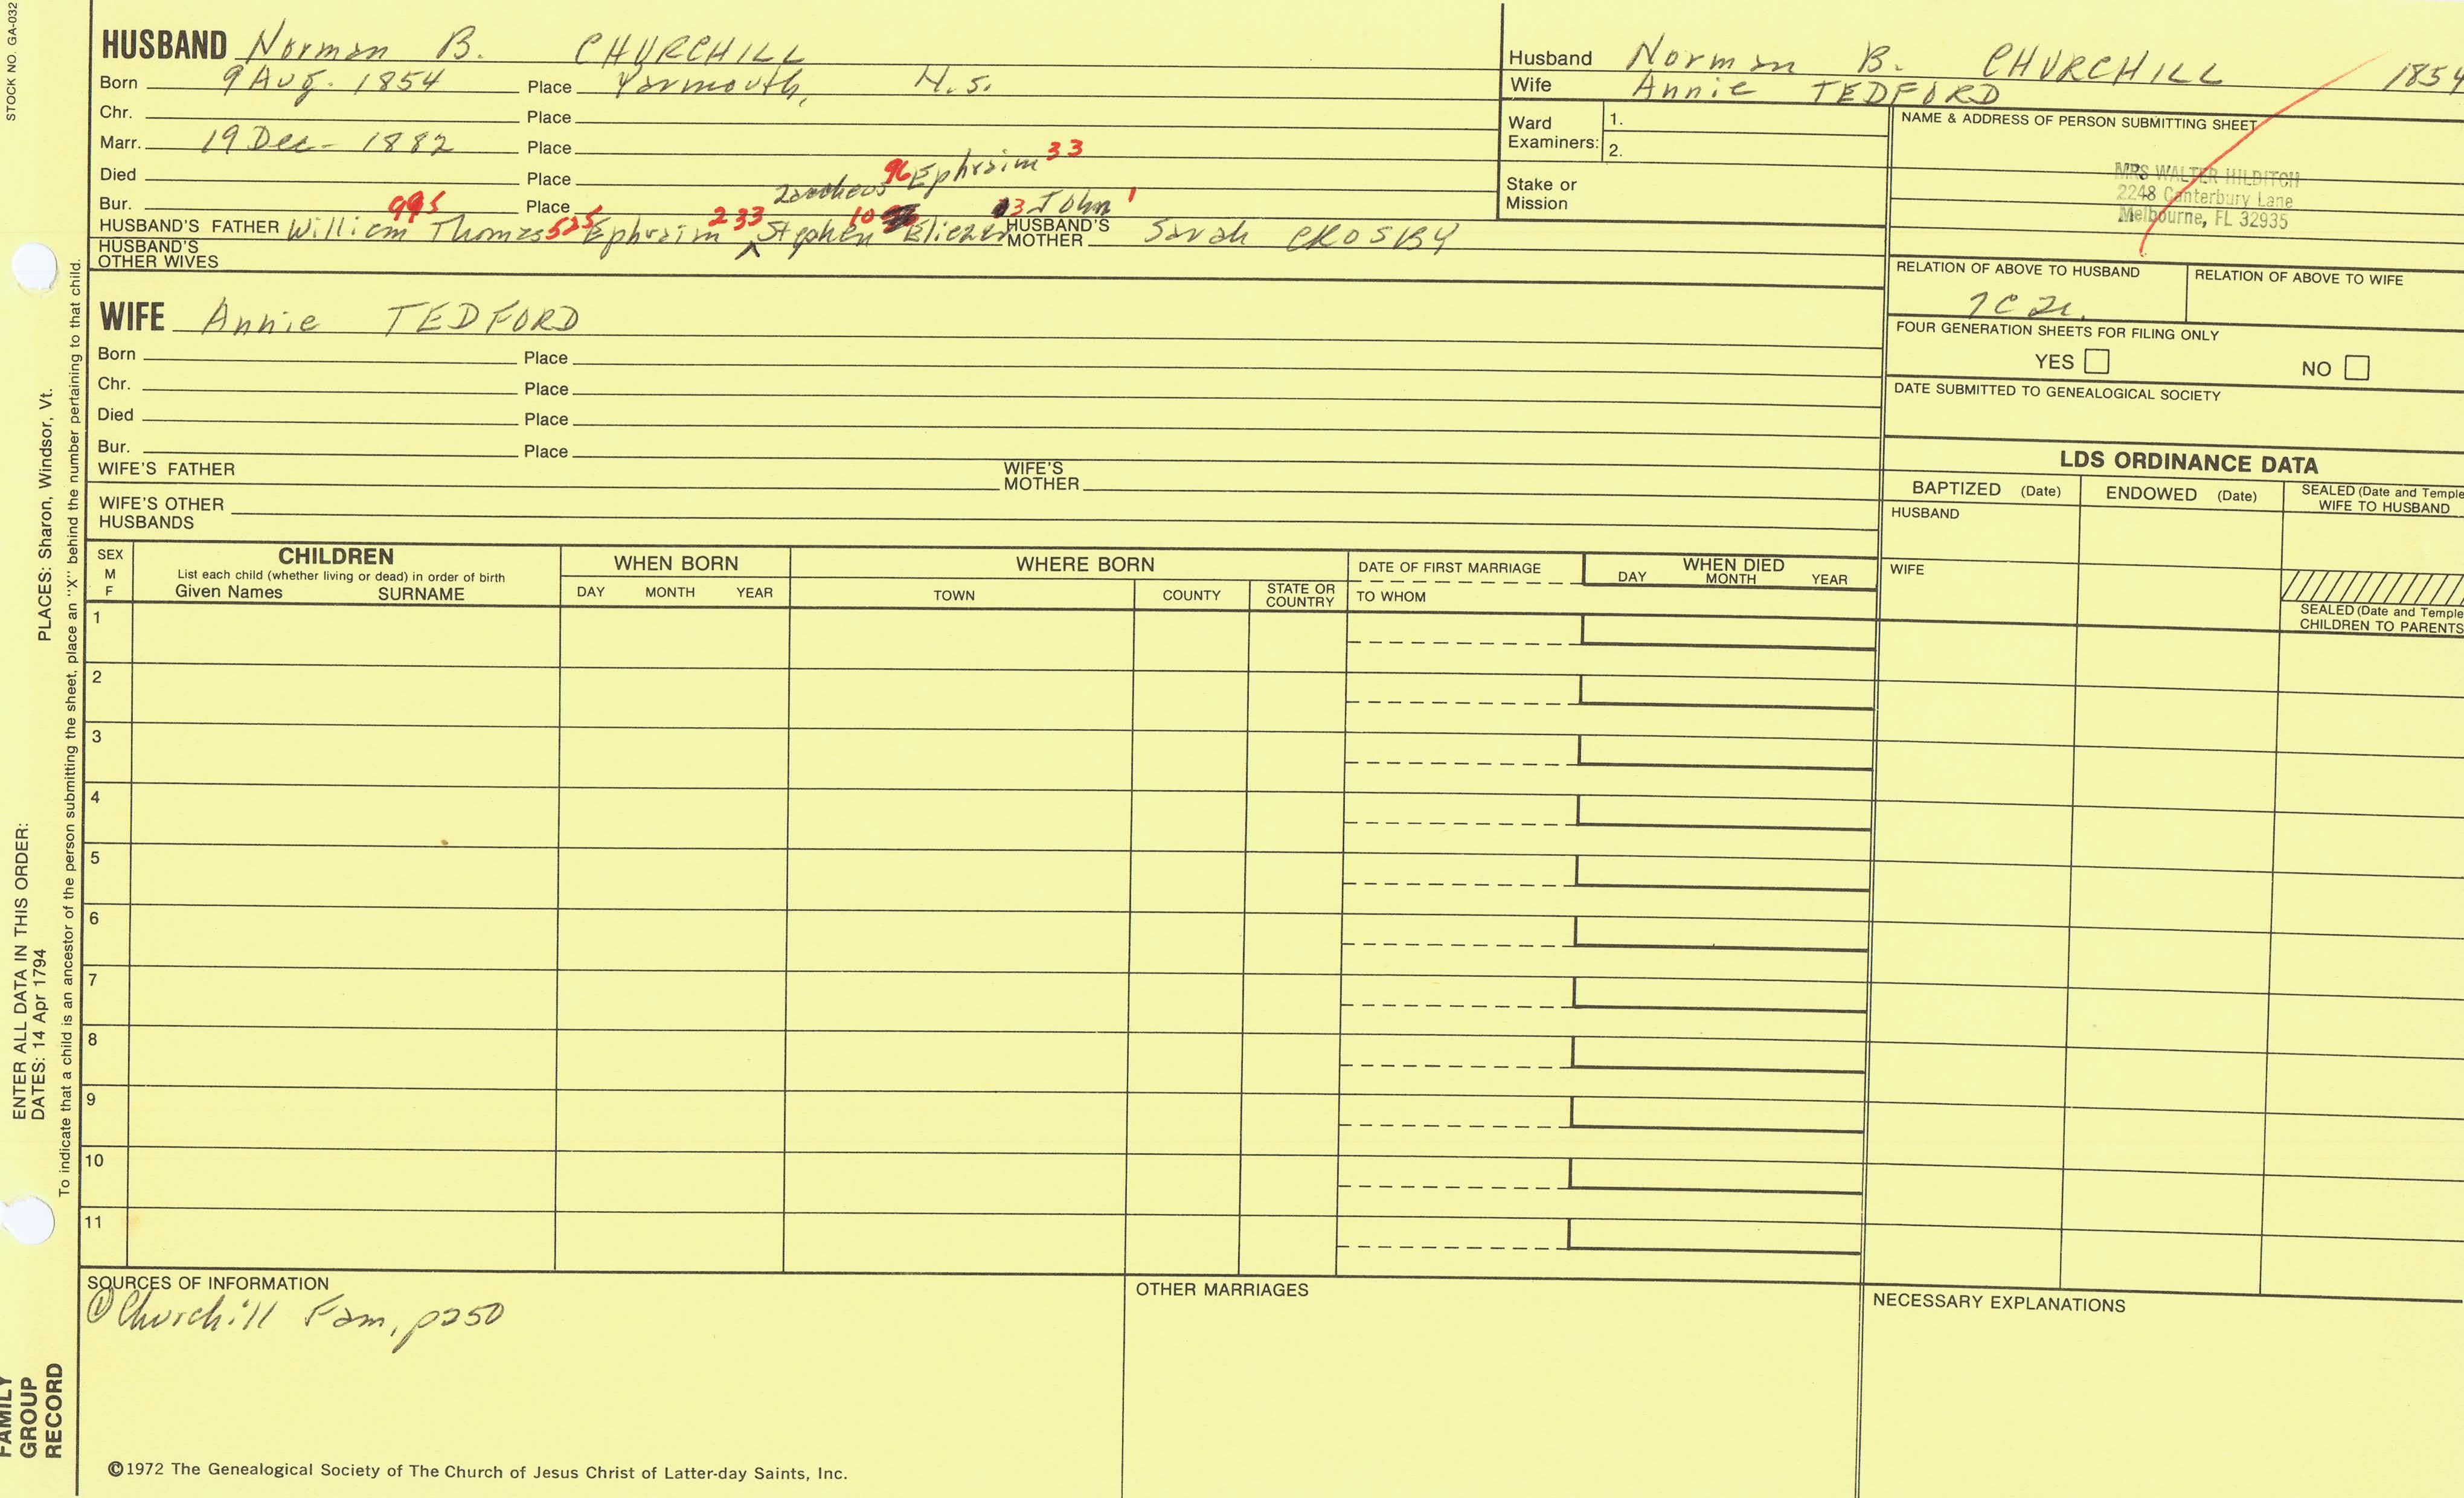 STOCK NO. GA-032
HUSBAND Norman B. CHURCHILL
Born 9 Aug. 1854 Place Yarmouth, N.S.
Chr. Place
Marr. 19 Dec - 1882 Place
Died Place 96 Ephraim 33
Bur. Place
995 525 233 10 3 John 1
HUSBAND'S FATHER William Thomas Ephraim ^ Stephen Eliezer HUSBAND'S MOTHER Sarah CROSBY
HUSBAND'S OTHER WIVES
Husband Norman B. CHURCHILL 1854
Wife Annie TEDFORD
Ward Examiners: 1.
2.
Stake or Mission
NAME & ADDRESS OF PERSON SUBMITTING SHEET
MRS WALTER HILDITCH
2248 Canterbury Lane
Melbourne, FL 32935
RELATION OF ABOVE TO HUSBAND RELATION OF ABOVE TO WIFE
FOUR GENERATION SHEETS FOR FILING ONLY
YES NO
DATE SUBMITTED TO GENEALOGICAL SOCIETY
WIFE Annie TEDFORD
Born Place
Chr. Place
Died Place
Bur. Place
WIFE'S FATHER WIFE'S MOTHER
WIFE'S OTHER HUSBANDS
LDS ORDINANCE DATA
BAPTIZED (Date) ENDOWED (Date) SEALED (Date and Temple
WIFE TO HUSBAND
HUSBAND
WIFE
SEALED (Date and Temple
CHILDREN TO PARENTS
SEX M F
CHILDREN
List each child (whether living or dead) in order of birth
Given Names SURNAME
WHEN BORN
DAY MONTH YEAR
WHERE BORN
TOWN COUNTY STATE OR COUNTRY
DATE OF FIRST MARRIAGE
TO WHOM
WHEN DIED
DAY MONTH YEAR
1
2
3
4
5
6
7
8
9
10
11
SOURCES OF INFORMATION
① Churchill Fam, p250
OTHER MARRIAGES
NECESSARY EXPLANATIONS
©1972 The Genealogical Society of The Church of Jesus Christ of Latter-day Saints, Inc.
PLACES: Sharon, Windsor, Vt.
ENTER ALL DATA IN THIS ORDER:
DATES: 14 Apr 1794
To indicate that a child is an ancestor of the person submitting the sheet, place an "X" behind the number pertaining to that child.
FAMILY
GROUP
RECORD